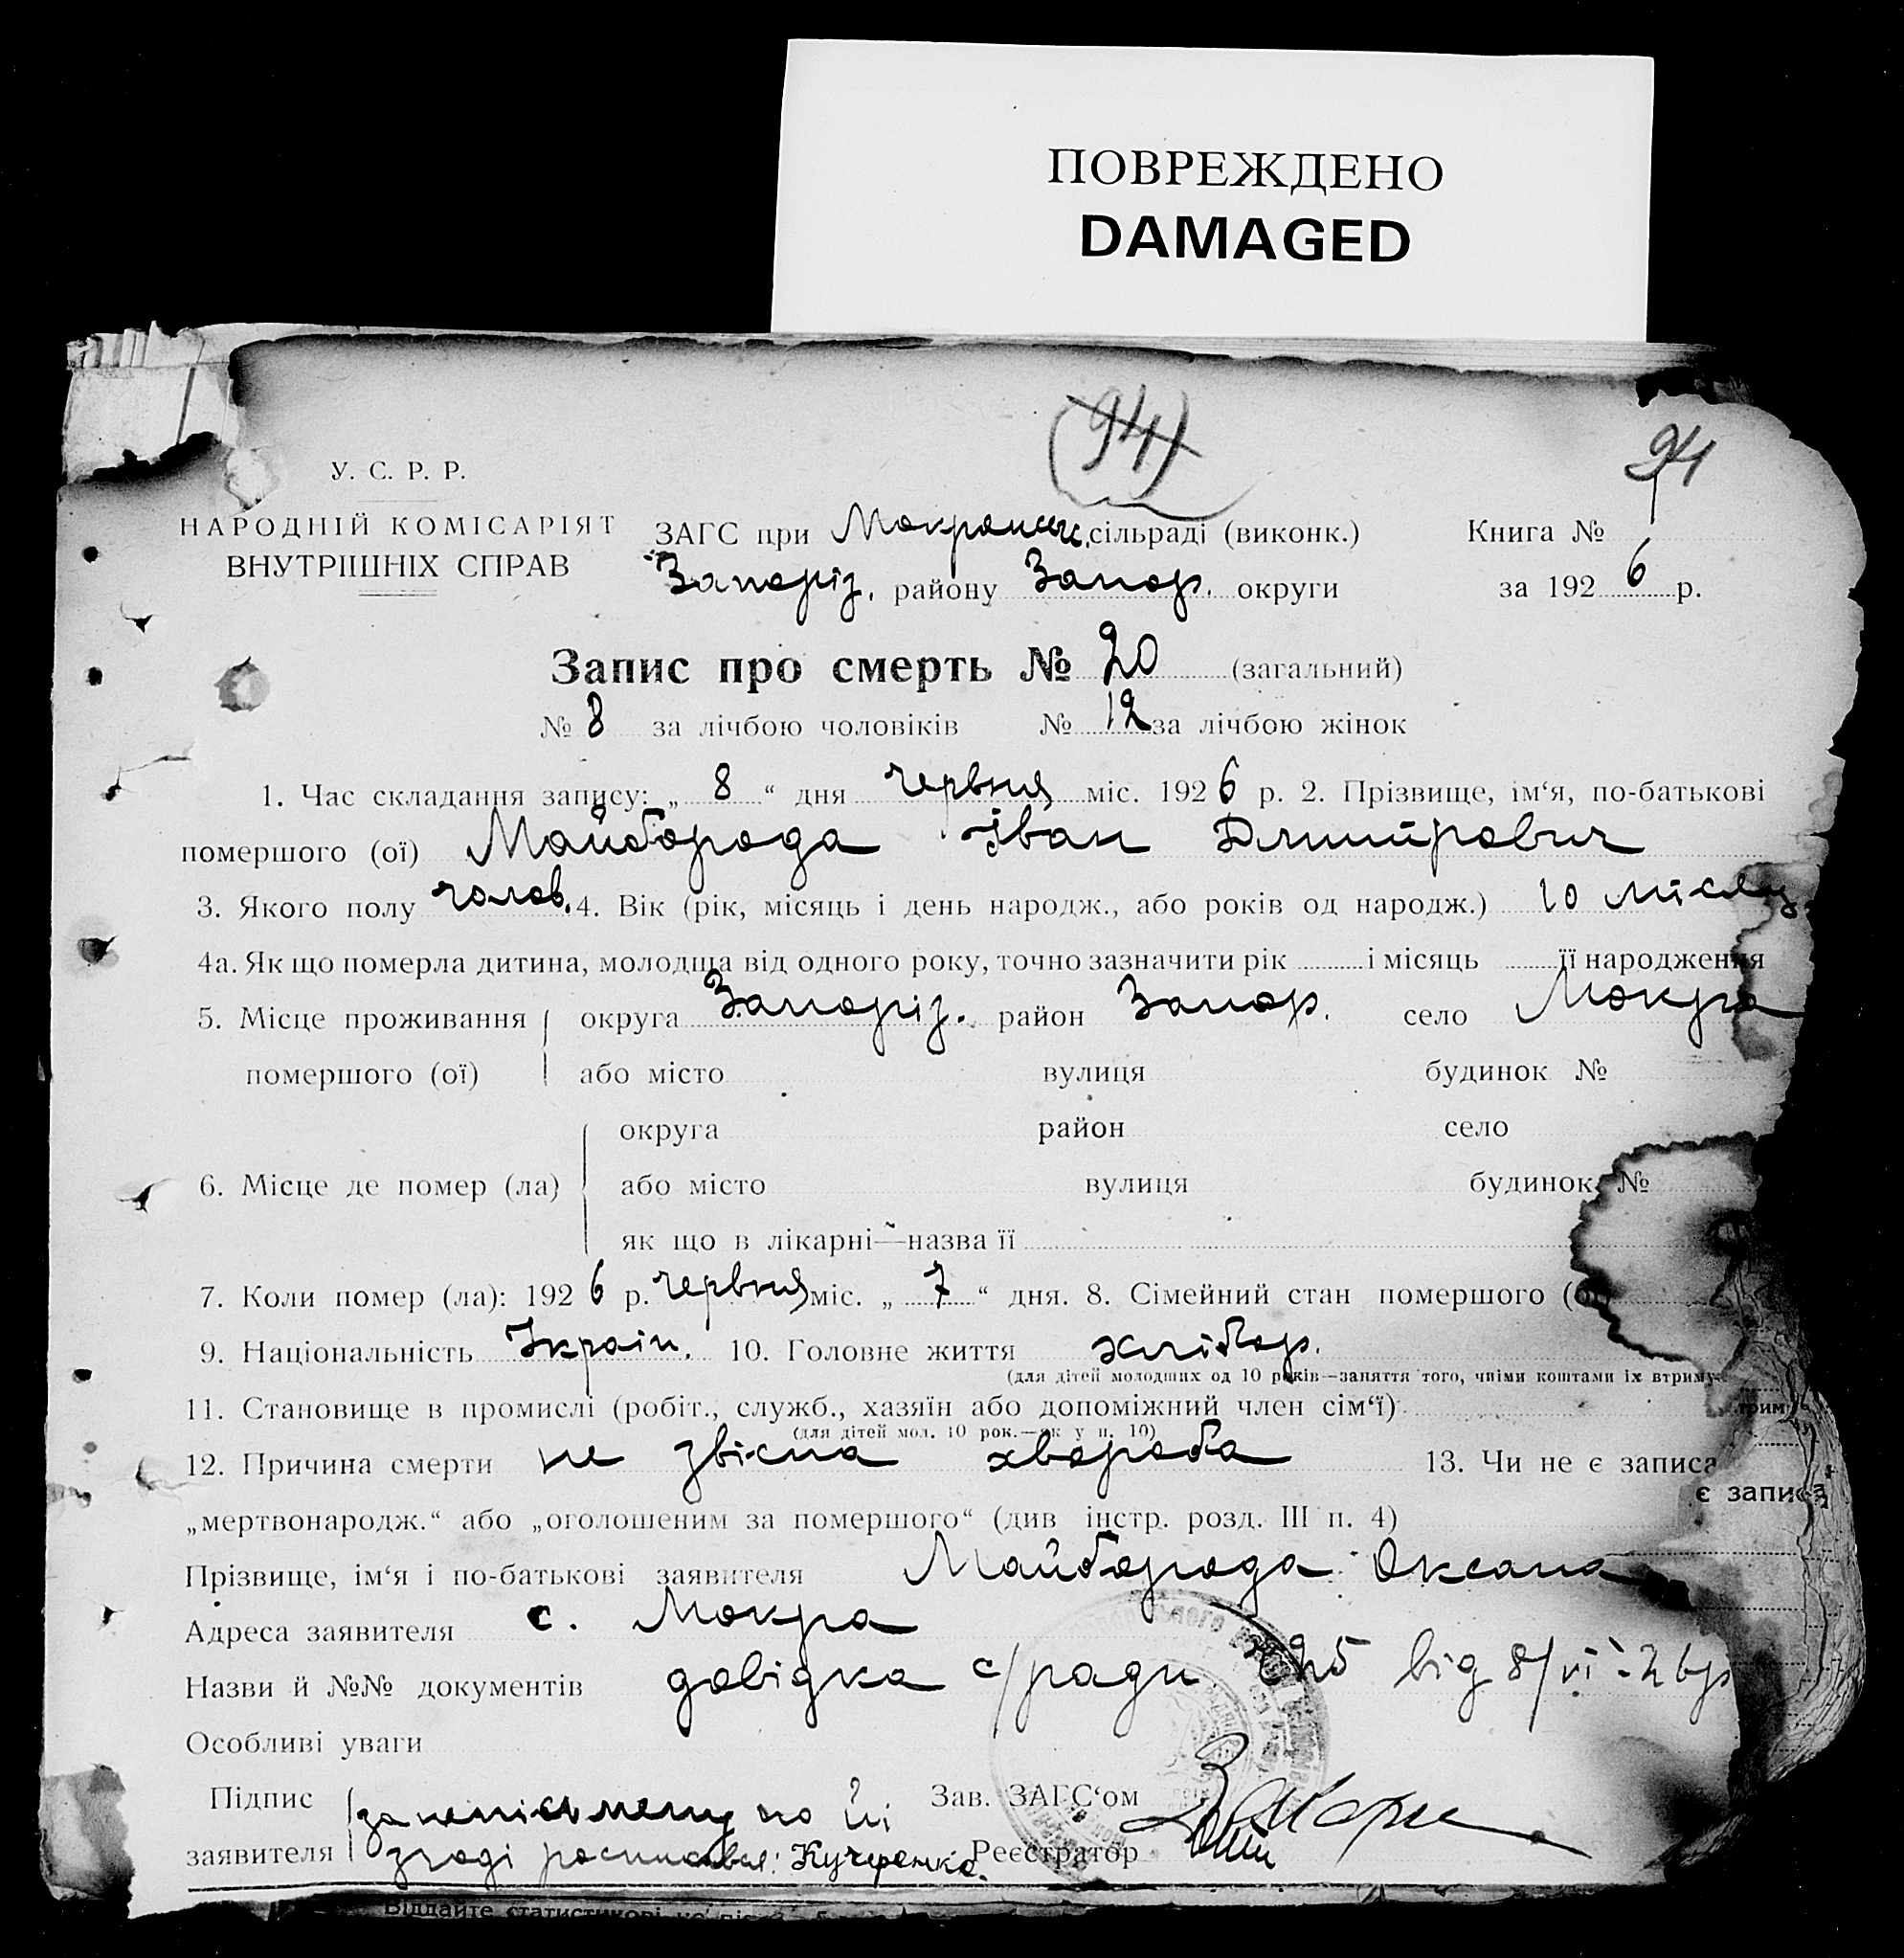 ПОВРЕЖДЕНО
DAMAGED
(94)
94
У. С. Р. Р.
НАРОДНІЙ КОМІСАРІЯТ
ВНУТРІШНІХ СПРАВ
ЗАГС при Мокрянськ. сільраді (виконк.) Книга №
Запоріз. району Запор. округи за 1926 р.
Запис про смерть № 20 (загальний)
№ 8 за лічбою чоловіків № 12 за лічбою жінок
1. Час складання запису: „ 8 “ дня червня міс. 1926 р. 2. Прізвище, ім‘я, по-батькові
помершого (ої) Майборода Іван Дмитрович
3. Якого полу чолов. 4. Вік (рік, місяць і день народж., або років од народж.) 10 місяц
4а. Як що померла дитина, молодша від одного року, точно зазначити рік і місяць її народження
5. Місце проживання округа Запоріз. район Запор. село Мокра
помершого (ої) або місто вулиця будинок №
округа район село
6. Місце де помер (ла) або місто вулиця будинок №
як що в лікарні—назва її
7. Коли помер (ла): 1926 р. червня міс. „ 7 “ дня. 8. Сімейний стан помершого
9. Національність Україн. 10. Головне життя хлібор.
(для дітей молодших од 10 років—заняття того, чиїми коштами їх втриму
11. Становище в промислі (робіт., служб., хазяїн або допоміжний член сім‘ї)
(для дітей мол. 10 рок.—як у п. 10)
12. Причина смерти не звісна хвороба 13. Чи не є записа
є запис
„мертвонародж.“ або „оголошеним за помершого“ (див інстр. розд. III п. 4)
Прізвище, ім‘я і по-батькові заявителя Майборода Оксана
Адреса заявителя с. Мокра
Назви й №№ документів довідка с/ради від 8/VI-26р
Особливі уваги
Підпис за неписьмену по її Зав. ЗАГС‘ом
заявителя згоді росписався: Кучеренко. Реєстратор
Віддайте статистикові